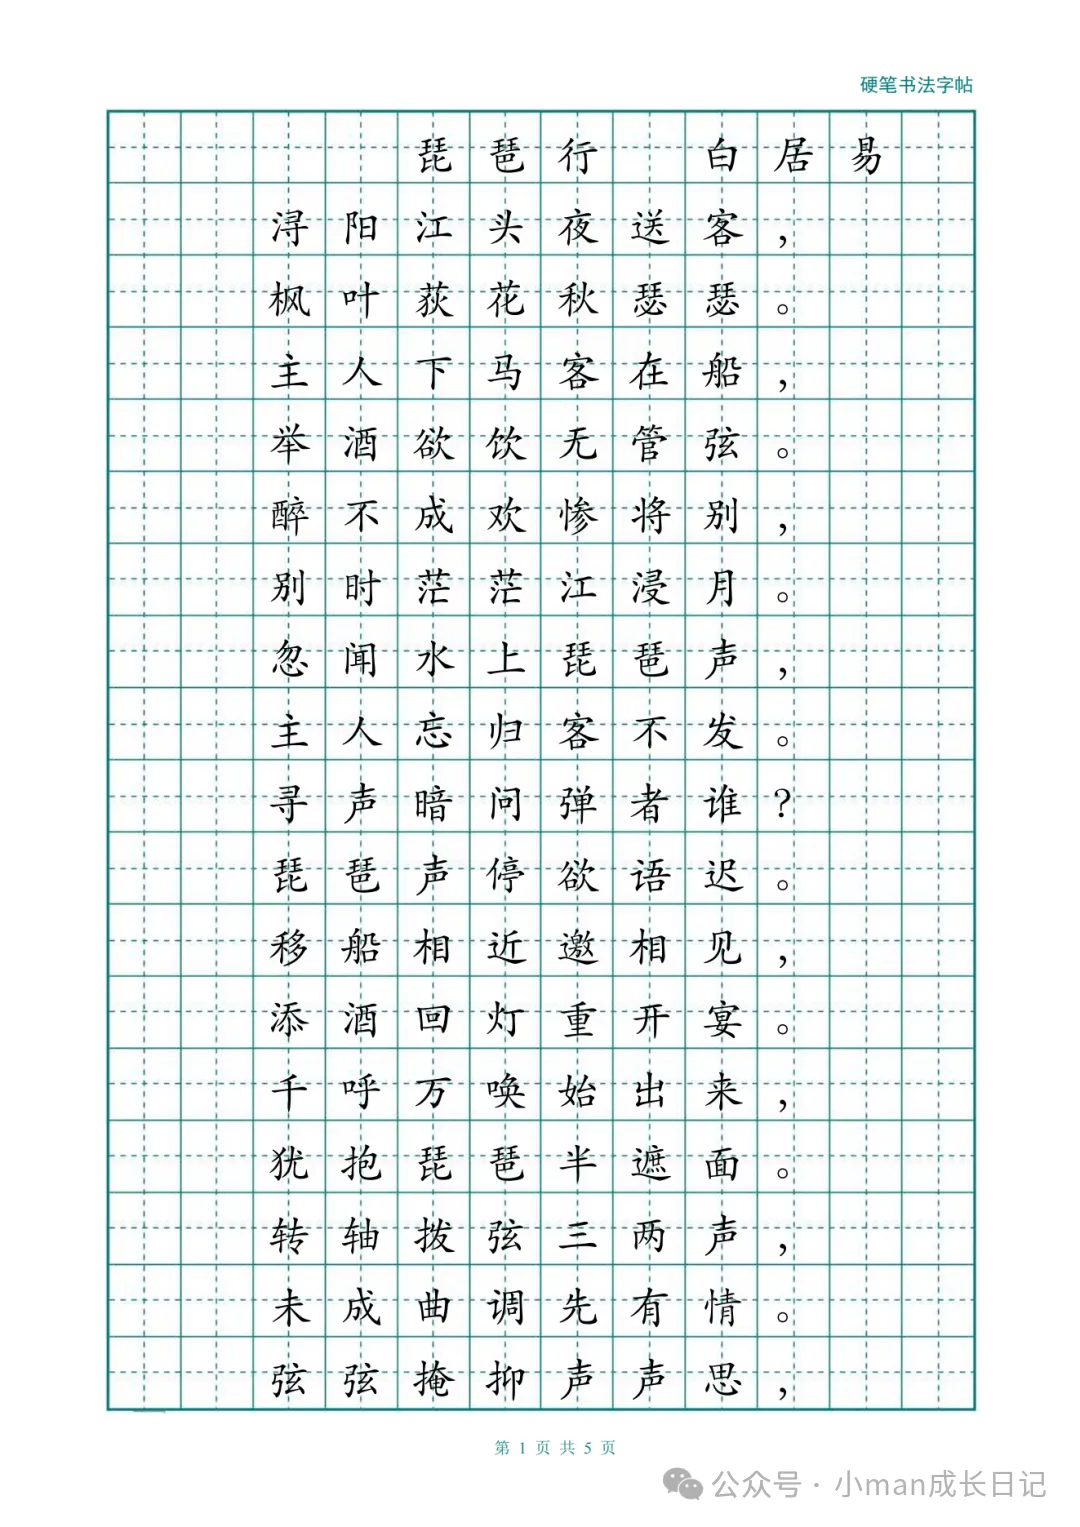 硬笔书法字帖
琵琶行 白居易
浔阳江头夜送客，
枫叶荻花秋瑟瑟。
主人下马客在船，
举酒欲饮无管弦。
醉不成欢惨将别，
别时茫茫江浸月。
忽闻水上琵琶声，
主人忘归客不发。
寻声暗问弹者谁？
琵琶声停欲语迟。
移船相近邀相见，
添酒回灯重开宴。
千呼万唤始出来，
犹抱琵琶半遮面。
转轴拨弦三两声，
未成曲调先有情。
弦弦掩抑声声思，
第 1 页 共 5 页
公众号 · 小man成长日记